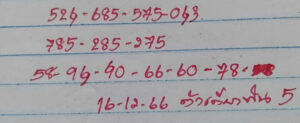 524-685-575-043.
785-285-275
58-94-90-66-60-78-
16-12-66 ตัวเดียวฟัน 5